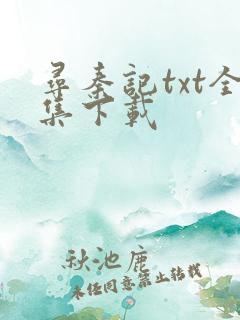 尋秦記txt全
集下載
秋池鹿
未经同意禁止转载